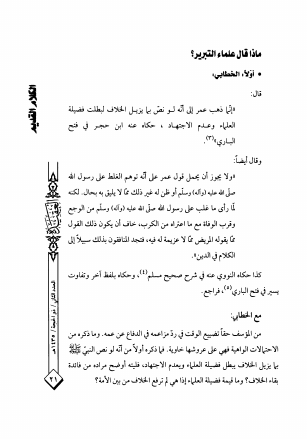 ماذا قال علماء التبرير؟
• أولاً، الخطابي،
قال:
«إنّما ذهب عمر إلى أنّه لو نصّ بما يزيل الخلاف لبطلت فضيلة
العلماء وعدم الاجتهاد، حكاه عنه ابن حجر في فتح
الباري»(٣).
وقال أيضاً:
«ولا يجوز أن يحمل قول عمر على أنّه توهم الغلط على رسول الله
صلّى الله عليه (وآله) وسلّم أو ظن له غير ذلك ممّا لا يليق به بحال. لكنه
لمّا رأى ما غلب على رسول الله صلّى الله عليه (وآله) وسلّم من الوجع
وقرب الوفاة مع ما اعتراه من الكرب، خاف أن يكون ذلك القول
ممّا يقوله المريض ممّا لا عزيمة له فيه، فتجد المنافقون بذلك سبيلاً إلى
الكلام في الدين».
كذا حكاه النووي عنه في شرح صحيح مسلم(٤)، وحكاه بلفظ آخر وتفاوت
يسير في فتح الباري(٥)، فراجع.
مع الخطابي:
من المؤسف حقاً تضييع الوقت في ردّ مزاعمه في الدفاع عن عمه. وما ذكره من
الاحتمالات الواهية فهي على عروشها خاوية. فما ذكره أولاً من أنّه لو نص النبي ﷺ
بما يزيل الخلاف يبطل فضيلة العلماء ويعدم الاجتهاد، فليته أوضح مراده من فائدة
بقاء الخلاف؟ وما قيمة فضيلة العلماء إذا هي لم ترفع الخلاف من بين الأمة؟
الكلام القديم
العدد الثاني / ذو الحجة / ١٤٣٥هـ
٢١